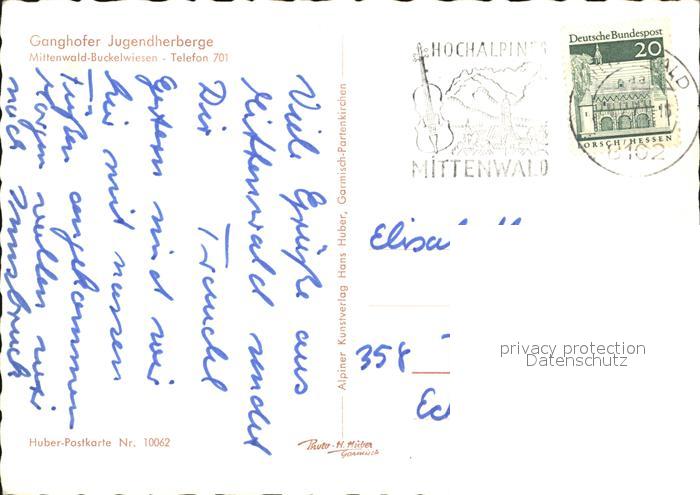 Ganghofer Jugendherberge
Mittenwald-Buckelwiesen - Telefon 701
Viele Grüße aus
Mittenwald sendet
Dir
Gestern sind wir
hier mit nassen
Füßen angekommen
Morgen wollen wir
nach Innsbruck
Huber-Postkarte Nr. 10062
Alpiner Kunstverlag Hans Huber, Garmisch-Partenkirchen
Photo-H. Huber
Garmisch
HOCHALPINES
MITTENWALD
Deutsche Bundespost
20
LORSCH/HESSEN
WALD
8102
358
privacy protection
Datenschutz